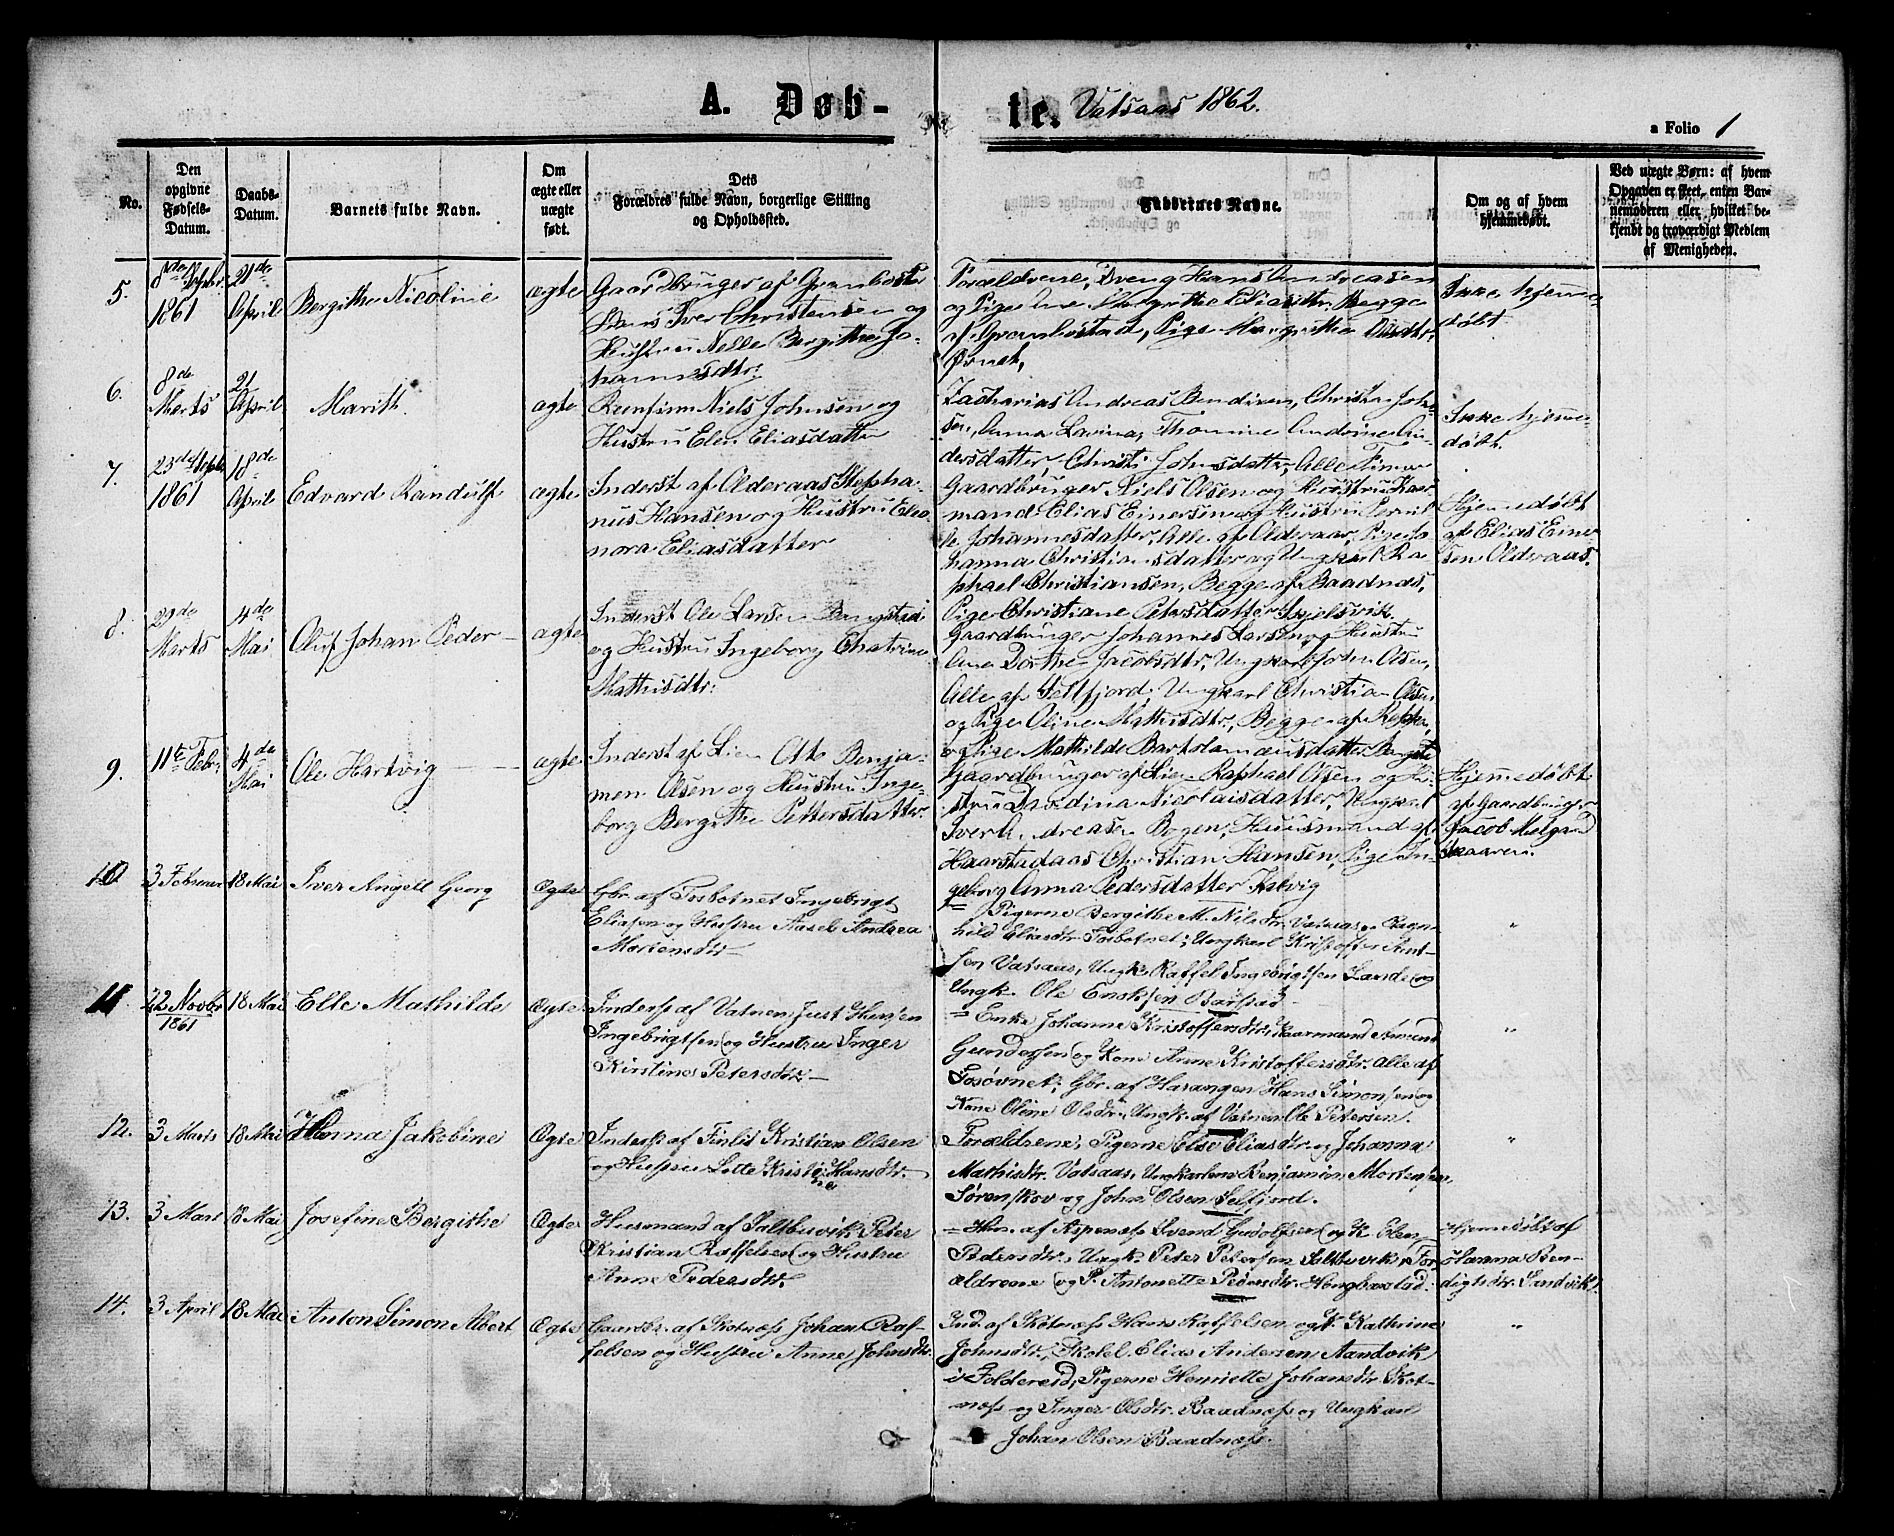 A. Døb-
te. Vatsaas 1862.
a Folio 1
No.
Den
opgivne
Fødsels-
Datum.
Daabs-
Datum.
Barnets fulde Navn.
Om
ægte eller
uægte
født.
Dets
Forældres fulde Navn, borgerlige Stilling
og Opholdssted.
Faddrernes Navne.
Om og af hvem
hjemmedøbt.
Ved uægte Børn: af hvem
Opgaven er skeet, enten Bar-
nemoderen eller hvilket be-
kjendt og troværdigt Medlem
af Menigheden.
5.
1861
21de
April
Bergitha Nicoline
ægte
Gaardbruger af
Hans Iver Christensen og
Hustru Nelle Bergitha Jo-
hannesdtr:
Forældrene, Dreng Hans Andreasen
og Pige Ane Margrethe Eliasdtr. Begge
af Pige Margrethe
Ikke hjemme-
døbt.
6.
8de
Marts
21
April
Marith.
ægte
Niels Johnsen og
Hustru Elen Eliasdatter
Zacharias Andreas Christen Joh-
sen, Anna Lavina, Thomine Andrine An-
dersdatter, Johnsdatter, Alle
Ikke hjemme-
døbt.
7.
1861
18de
April
Edvard Randulf
ægte
Inderst af Olderaas Stepha-
nus Hansen og Hustru Eleo-
nora Eliasdatter
Gaardbruger Niels Olsen og Hustru Kaar-
mand Elias Einersen og Hustru Pernil-
le Johannesdatter, Alle af Olderaas, Pige Jo-
hanna Christiansdatter og Ungkarl Ra-
phael Christiansen, Begge af Baadnæs,
Hjemmedøbt
af Elias Einer-
sen Olderaas.
8.
29de
Marts
4de
Mai
Oluf Johan Peder
ægte
Inderst Ole Larsen Bangstad
og Hustru Ingeborg Chatrine
Mathisdtr:
Pige Christiane Petersdatter
Gaardbruger Johannes Larsen og Hustru
Ane Dorthe Jacobsdtr, Ungkarl John Olsen,
Alle af Selfjord, Ungkarl Christian Olsen
og Pige Oline Mathisdtr, Begge af
og Pige Mathilde Bartolomæusdatter
9.
11te Febr:
4de
Mai
Ole Hartvig
ægte
Inderst af Lien Benja-
men Olsen og Hustru Inge-
borg Bergitha Pettersdatter.
Gaardbruger af Lien Raphael Olsen og Hu-
stru Nicolaisdatter, Ungkarl
Iver Andreasen Bogen, Huusmand af
Haarstadaas Christian Hansen, Pige In-
geborg Anna Pedersdatter
Hjemmedøbt
af Gaardbruger
Jacob
10
3 Februar
18 Mai
Iver Angell Georg
Ægte
Gbr. af Fosbotnet Ingebrigt
Eliasen og Hustru Aasel Andrea
Mortensdtr
Pigerne Bergithe M. Nilsdtr. Vatsaas, Ragn-
hild Eliasdtr. Fosbotnet; Ungkarl Kristoffer
sen Vatsaas, Ungk. Raffel Ingebrigtsen Lande og
Ungk. Ole
"
11
22 Novbr
1861
18 Mai
Elle Mathilde
Ægte
Inderst af Vatnen Just
Ingebrigtsen og Hustru Inger
Kirstine Petersdtr
Enke Johanne Kristoffersdtr, Kaarmand
Gundersen og Kone Anne Kristoffersdtr. alle af
Gbr. af Harangen Hans Simonsen og
Kone Oline Olsdtr. Ungk. af Vatnen Ole Petersen.
"
12.
3 Marts
18 Mai
Hanna Jakobine
Ægte
Inderst af Finlid Kristian Olsen
og Hustru Lotte Kristine Hansdtr.
Forældrene; Pigerne Else Eliasdtr og Johanna
Mathisdtr. Vatsaas, Ungkarlene Benjamin Mortensen
Sørenskov og John Olsen Selfjord.
"
13.
3 Mars
18 Mai
Josefine Bergithe
Ægte
Huusmand af Saltbuvik Peter
Kristian Raffelsen og Hustru
Anne Pedersdtr.
Hm. af Aspenæss Svend Gudolfsen og K. Elen
Pedersdtr. Ungk. Peter Petersen Saltbuvik, For-
ældrene og P. Antonette Pedersdtr.
Hjemmedøbt af
Hanna Ben-
digtsdtr. Sandvik.
14.
3 April
18 Mai
Anton Simon Albert
Ægte
Gaardbr. af Skotnæss Johan Raf-
felsen og Hustru Anne Johnsdtr.
Ind. af Skotnæss Hans Raffelsen og K. Kathrine
Johnsdtr, Skolel. Elias Andersen Aandvik
i Foldereid, Pigerne Henriette Johansdtr Skot-
næss og Inger Olsdtr. Baadnæss og Ungkarl
Johan Olsen Baadnæss.
"